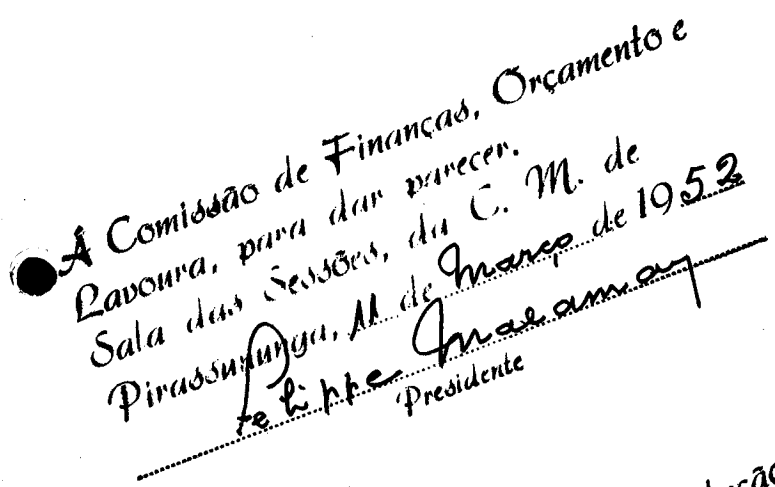 Á Comissão de Finanças, Orçamento e
Lavoura, para dar parecer.
Sala das Sessões, da C. M. de
Pirassununga, 11 de Março de 1952
Felippe Malaman
Presidente